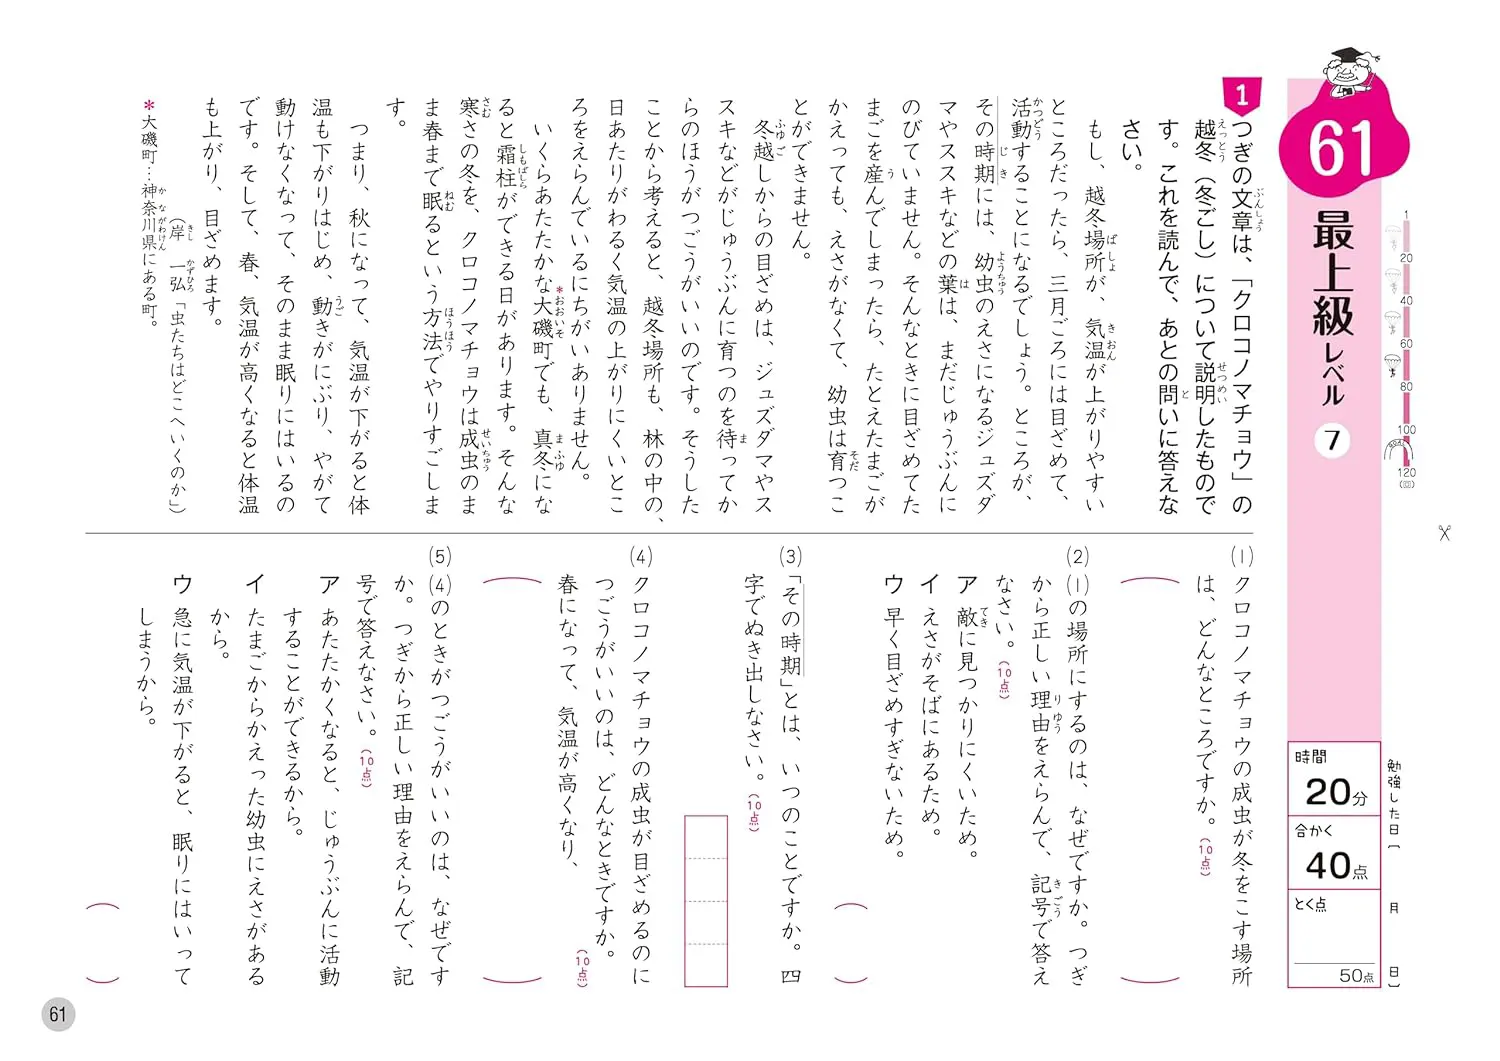 61
最上級レベル7
1
20
40
60
80
100
120
(回)
GOAL
勉強した日〔 月 日〕
時間
20分
合かく
40点
とく点
50点
1
つぎの文章は、「クロコノマチョウ」の
越冬（冬ごし）について説明したもので
す。これを読んで、あとの問いに答えな
さい。
もし、越冬場所が、気温が上がりやすい
ところだったら、三月ごろには目ざめて、
活動することになるでしょう。ところが、
その時期には、幼虫のえさになるジュズダ
マやススキなどの葉は、まだじゅうぶんに
のびていません。そんなときに目ざめてた
まごを産んでしまったら、たとえたまごが
かえっても、えさがなくて、幼虫は育つこ
とができません。
冬越しからの目ざめは、ジュズダマやス
スキなどがじゅうぶんに育つのを待ってか
らのほうがつごうがいいのです。そうした
ことから考えると、越冬場所も、林の中の、
日あたりがわるく気温の上がりにくいとこ
ろをえらんでいるにちがいありません。
いくらあたたかな*大磯町でも、真冬にな
ると霜柱ができる日があります。そんな
寒さの冬を、クロコノマチョウは成虫のま
ま春まで眠るという方法でやりすごしま
す。
つまり、秋になって、気温が下がると体
温も下がりはじめ、動きがにぶり、やがて
動けなくなって、そのまま眠りにはいるの
です。そして、春、気温が高くなると体温
も上がり、目ざめます。
（岸 一弘「虫たちはどこへいくのか」）
*大磯町…神奈川県にある町。
(1) クロコノマチョウの成虫が冬をこす場所
は、どんなところですか。（10点）
(2) (1)の場所にするのは、なぜですか。つぎ
から正しい理由をえらんで、記号で答え
なさい。（10点）
ア 敵に見つかりにくいため。
イ えさがそばにあるため。
ウ 早く目ざめすぎないため。
(3) 「その時期」とは、いつのことですか。四
字でぬき出しなさい。（10点）
(4) クロコノマチョウの成虫が目ざめるのに
つごうがいいのは、どんなときですか。（10点）
春になって、気温が高くなり、
(5) (4)のときがつごうがいいのは、なぜです
か。つぎから正しい理由をえらんで、記
号で答えなさい。（10点）
ア あたたかくなると、じゅうぶんに活動
することができるから。
イ たまごからかえった幼虫にえさがある
から。
ウ 急に気温が下がると、眠りにはいって
しまうから。
61